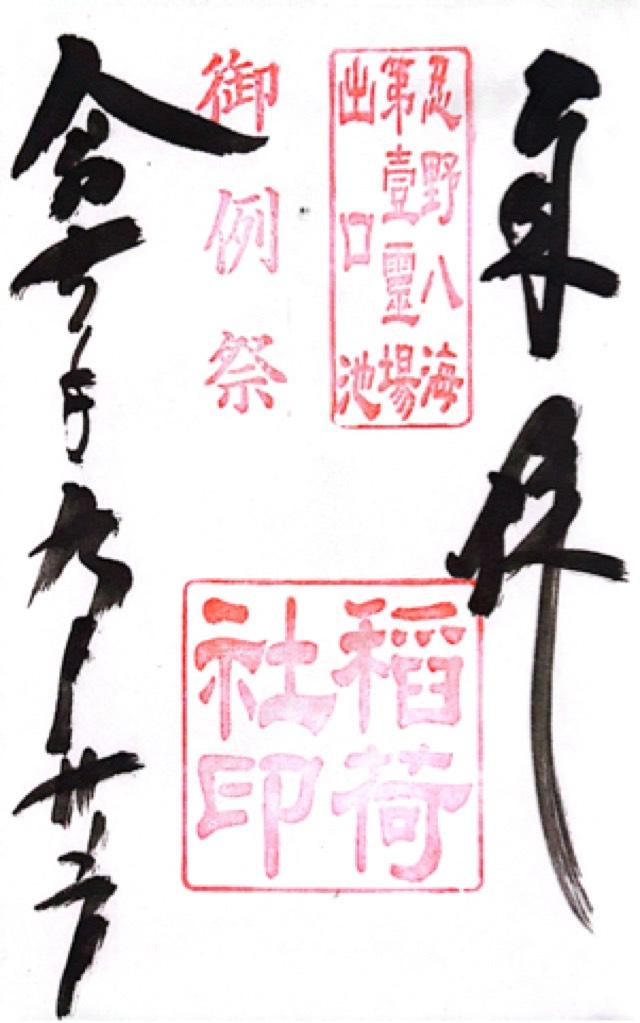 奉拝
忍野八海
第壹靈場
出口池
稲荷
社印
御例祭
令和七年九月廿日